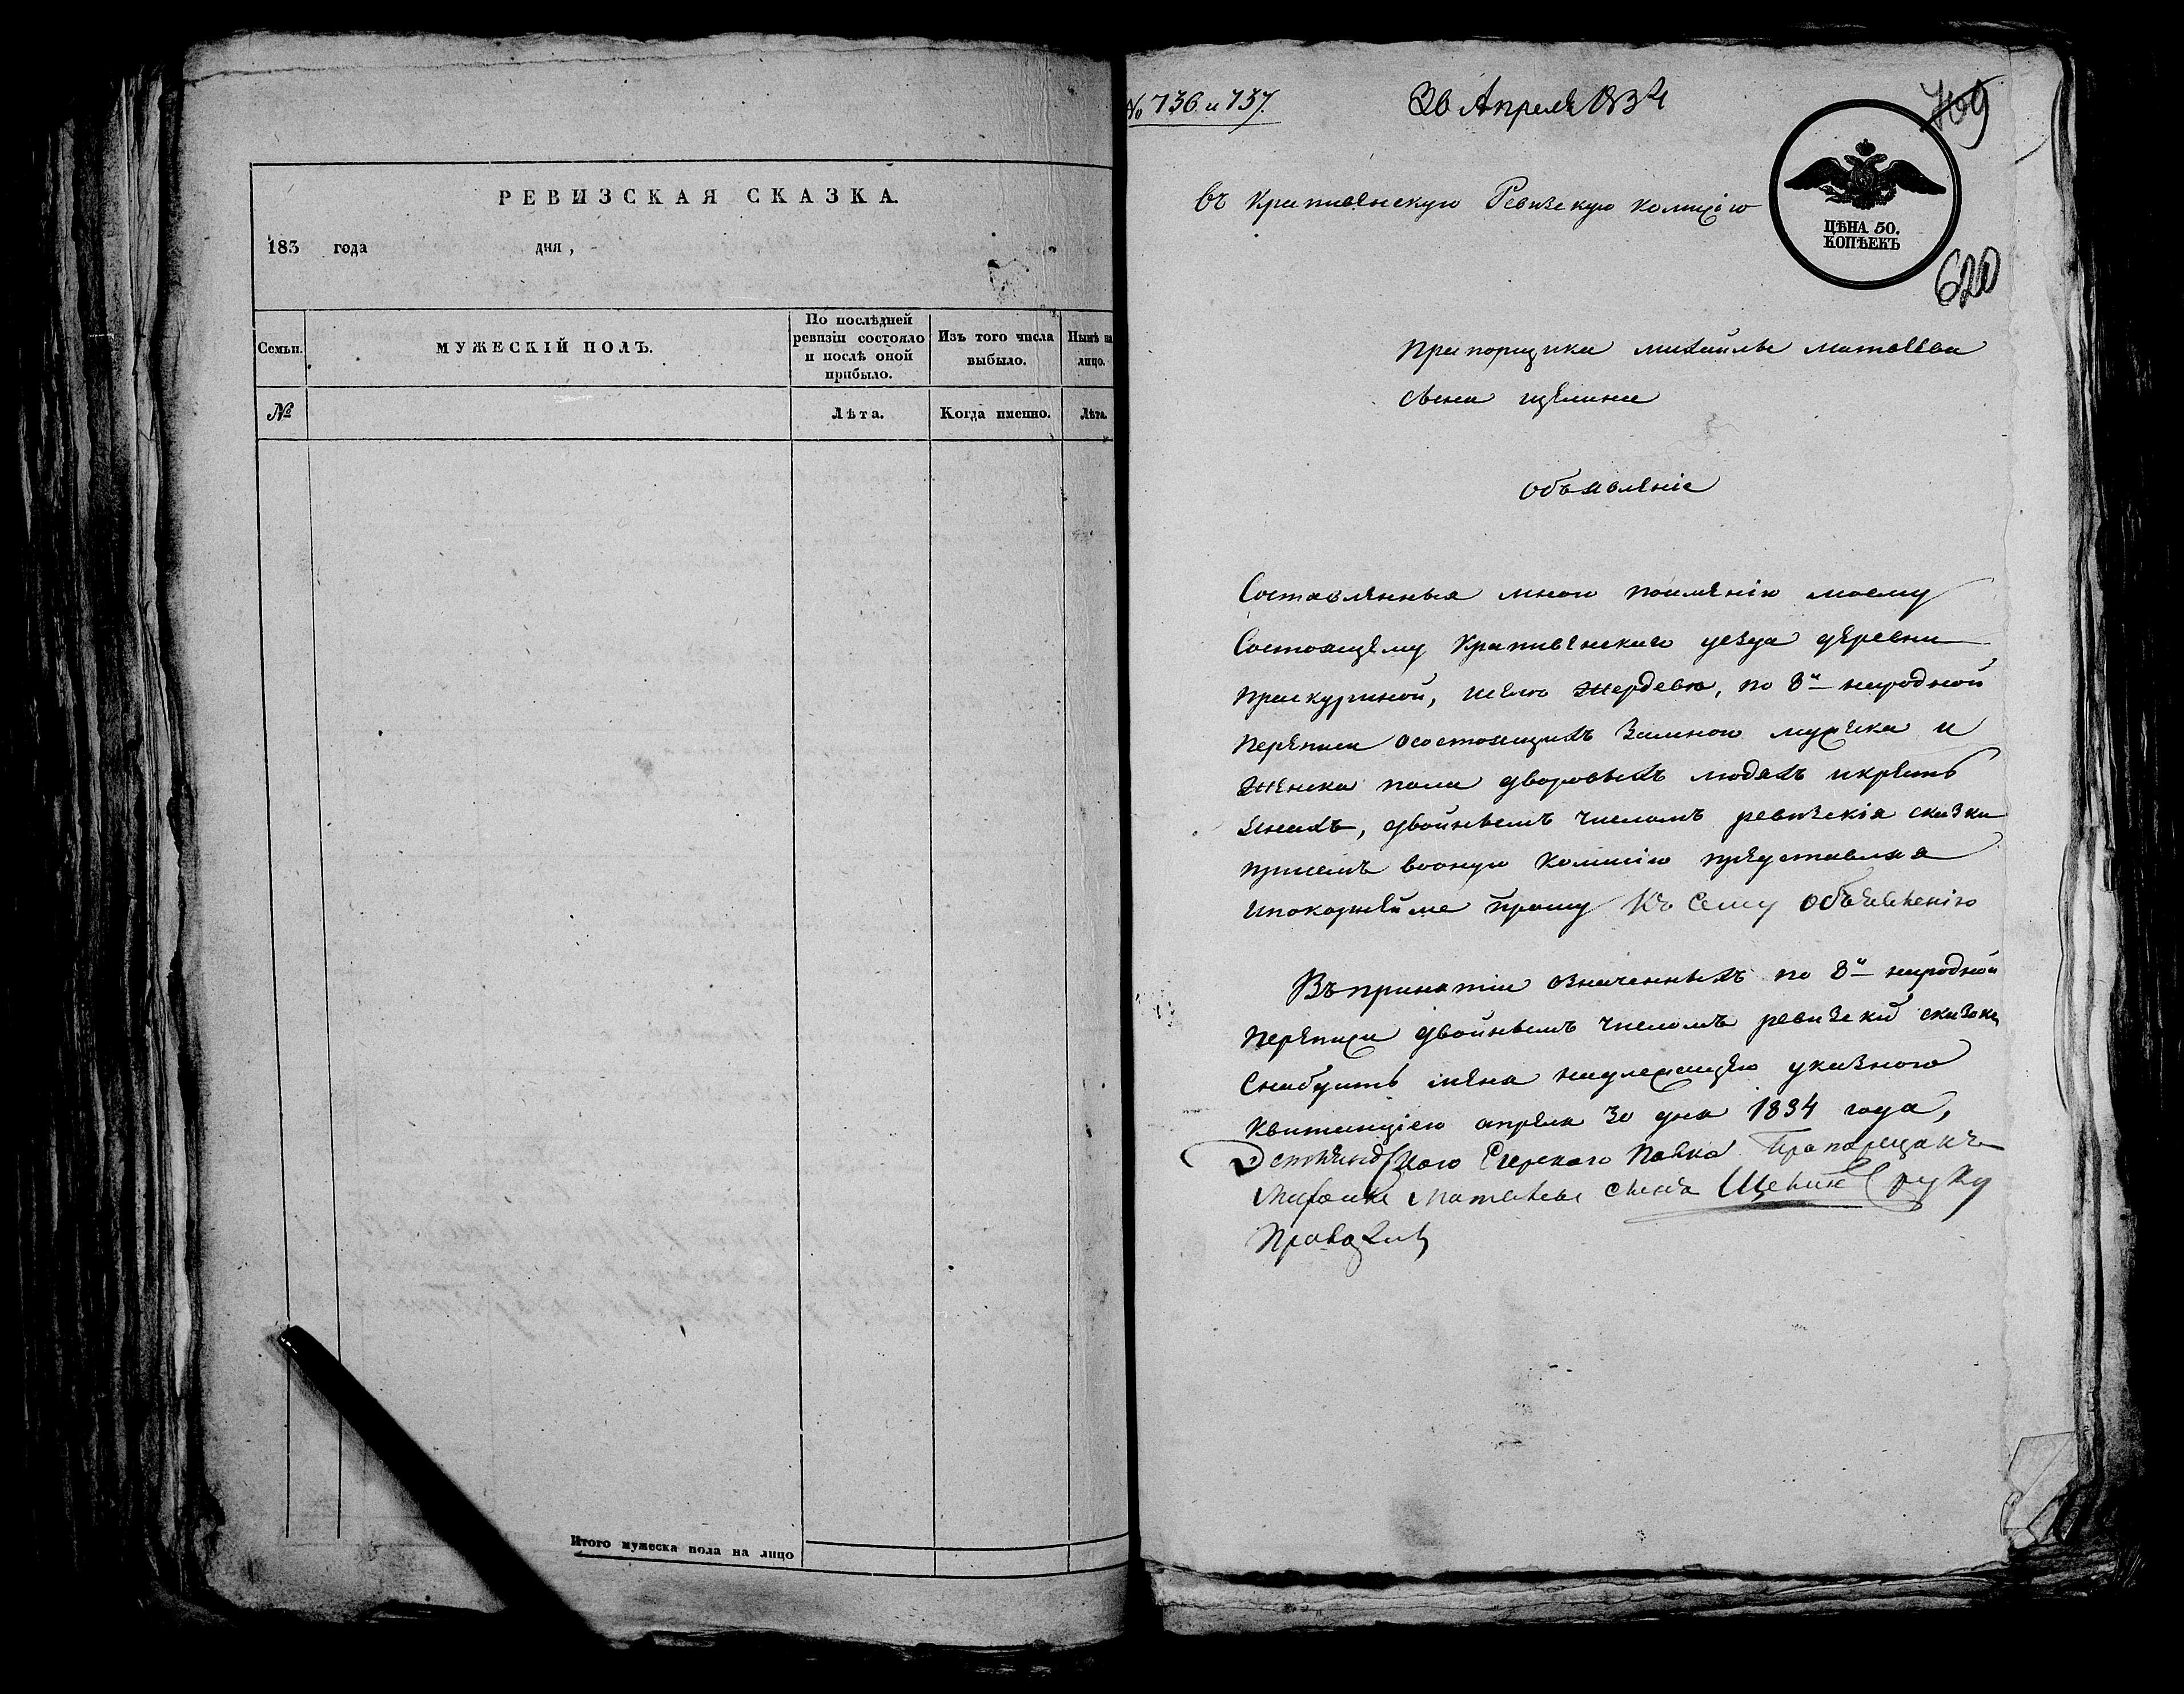 РЕВИЗСКАЯ СКАЗКА.
183 года дня,
Семьи.
МУЖЕСКІЙ ПОЛЪ.
По послѣдней ревизіи состояло и послѣ оной прибыло.
Изъ того числа выбыло.
Нынѣ на лицо.
№
Лѣта.
Когда именно.
Лѣта.
Итого мужеска пола на лицо
№ 736 и 737.
30 Апреля 1834
709
въ Крапивенскую Ревизскую комисію
ЦѢНА 50.
КОПѢЕКЪ
620
Прапорщика михайлы матвѣева
сына щелина
объявленіе
Составленныя мною поимѣнію моему
Состоящему Крапивенскаго уезда деревни
Прискуриной, жердево, по 8й народной
Переписи осостоящихъ замною мужска и
женска пола дворовыхъ людяхъ икресть
янахъ, двойнымъ числомъ ревизскія сказки
присемъ вооную комисію представляя
ипокорнѣйше прошу Къ сему объевленію
Въ принятіи означенныхъ по 8й народной
Переписи двойнымъ числомъ ревизскихъ сказокъ
Снабдить меня надлежащею указною
Квитанціею апреля 30 дня 1834 года,
Егерского Полка Прапорщикъ
Михаила Матвѣевъ сынъ руку
Приложилъ